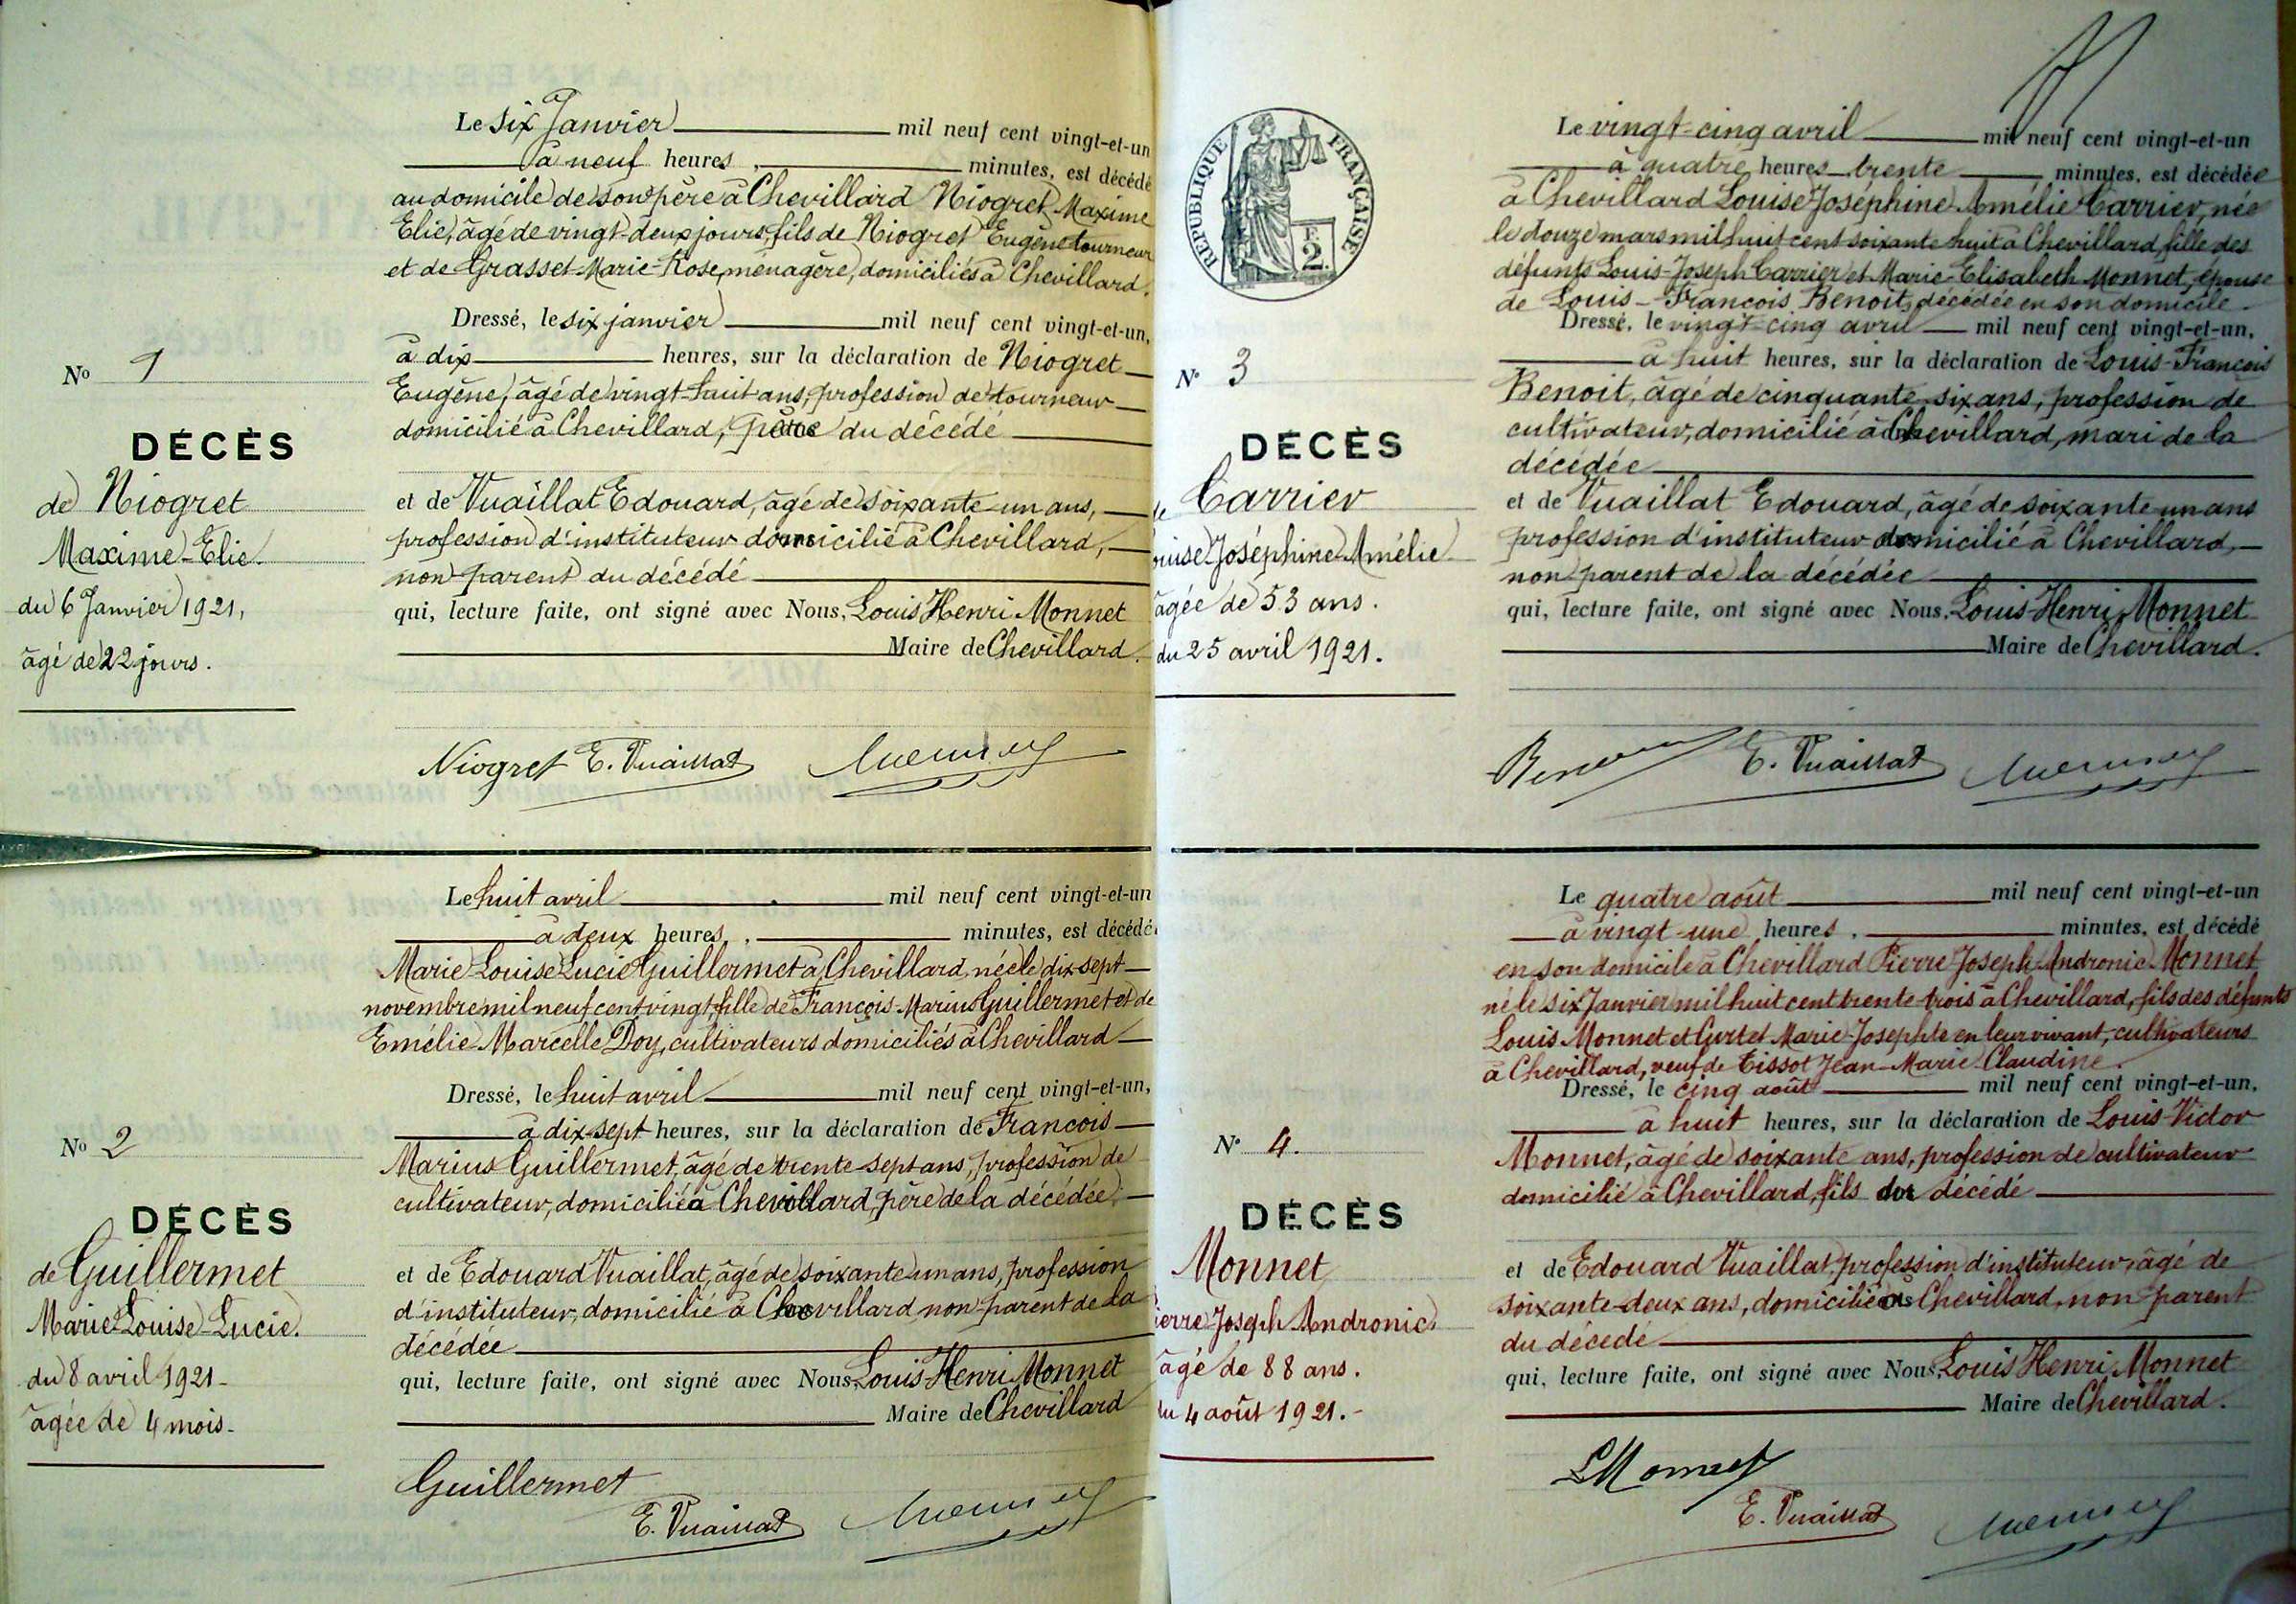 Le six Janvier mil neuf cent vingt-et-un
à neuf heures, minutes, est décédé
au domicile de son père à Chevillard Niogret Maxime
Elie, âgé de vingt-deux jours, fils de Niogret Eugène tourneur
et de Grasset Marie-Rose, ménagère, domiciliés à Chevillard.
Dressé, le six janvier mil neuf cent vingt-et-un,
à dix heures, sur la déclaration de Niogret
Eugène, âgé de vingt-huit ans, profession de tourneur
domicilié à Chevillard, père du décédé
et de Vuaillat Edouard, âgé de soixante-un ans,
profession d'instituteur domicilié à Chevillard,
non parent du décédé
qui, lecture faite, ont signé avec Nous, Louis Henri Monnet
Maire de Chevillard.
No 1
DÉCÈS
de Niogret
Maxime-Elie.
du 6 Janvier 1921,
âgé de 22 jours.
Niogret E. Vuaillat
Le huit avril mil neuf cent vingt-et-un
à deux heures, minutes, est décédé
Marie Louise Lucie Guillermet à Chevillard, née le dix-sept
novembre mil neuf cent vingt, fille de François-Marius Guillermet et de
Emélie Marcelle Doy, cultivateurs domiciliés à Chevillard
Dressé, le huit avril mil neuf cent vingt-et-un,
à dix-sept heures, sur la déclaration de Francois
Marius Guillermet, âgé de trente-sept ans, profession de
cultivateur, domicilié à Chevillard, père de la décédée,
et de Edouard Vuaillat, âgé de soixante un ans, profession
d'instituteur, domicilié à Chevillard non parent de la
décédée
qui, lecture faite, ont signé avec Nous, Louis-Henri Monnet
Maire de Chevillard
No 2
DÉCÈS
de Guillermet
Marie Louise-Lucie.
du 8 avril 1921-
âgée de 4 mois-
Guillermet
E. Vuaillat
RÉPUBLIQUE FRANÇAISE
F.
2.
Le vingt-cinq avril mil neuf cent vingt-et-un
à quatre heures trente minutes, est décédée
à Chevillard Louise Joséphine Amélie Carrier, née
le douze mars mil huit cent soixante huit à Chevillard, fille des
défunts Louis-Joseph Carrier et Marie-Elisabeth Monnet, épouse
de Louis-François Benoit, décédée en son domicile.
Dressé, le vingt-cinq avril mil neuf cent vingt-et-un,
à huit heures, sur la déclaration de Louis-François
Benoit, âgé de cinquante-six ans, profession de
cultivateur, domicilié à Chevillard, mari de la
décédée
et de Vuaillat Edouard, âgé de soixante un ans
profession d'instituteur domicilié à Chevillard,
non parent de la décédée
qui, lecture faite, ont signé avec Nous, Louis-Henri Monnet
Maire de Chevillard.
No 3
DÉCÈS
de Carrier
ouise Joséphine Amélie
âgée de 53 ans.
du 25 avril 1921.
E. Vuaillat
Le quatre août mil neuf cent vingt-et-un
à vingt-une heures, minutes, est décédé
en son domicile à Chevillard Pierre Joseph Andronic Monnet
né le six Janvier mil huit cent trente-trois à Chevillard, fils des défunts
Louis Monnet et Curtet Marie-Josephte en leur vivant, cultivateurs
à Chevillard, veuf de Tissot Jean-Marie Claudine.
Dressé, le cinq août mil neuf cent vingt-et-un,
à huit heures, sur la déclaration de Louis-Victor
Monnet, âgé de soixante ans, profession de cultivateur
domicilié à Chevillard, fils du décédé
et de Edouard Vuaillat, profession d'instituteur, âgé de
soixante-deux ans, domicilié à Chevillard, non parent
du décédé
qui, lecture faite, ont signé avec Nous, Louis Henri Monnet
Maire de Chevillard.
No 4.
DÉCÈS
Monnet
ierre Joseph Andronic
âgé de 88 ans.
du 4 août 1921.-
L Monnet
E. Vuaillat